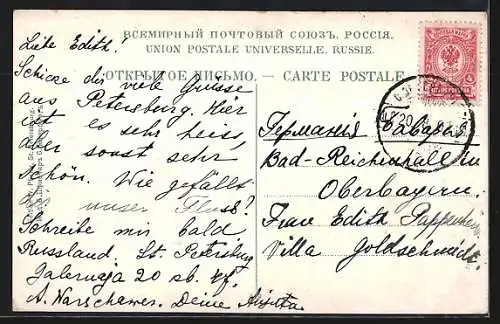 ВСЕМІРНЫЙ ПОЧТОВЫЙ СОЮЗЪ. РОССІЯ.
UNION POSTALE UNIVERSELLE. RUSSIE.
ОТКРЫТОЕ ПИСЬМО. — CARTE POSTALE.
Liebe Edith!
Schicke dir viele Grüsse
aus Petersburg. Hier
ist es sehr heiss,
aber sonst sehr
schön. Wie gefällt
dir unser Fluss?
Schreibe mir bald
Russland. St. Petersburg
Galernaja 20 
A. Warschawer. Deine
Германія Баварія
Bad-Reichenhall in
Oberbayern.
Frau Edith Pappenheim
Villa Goldschmidt.